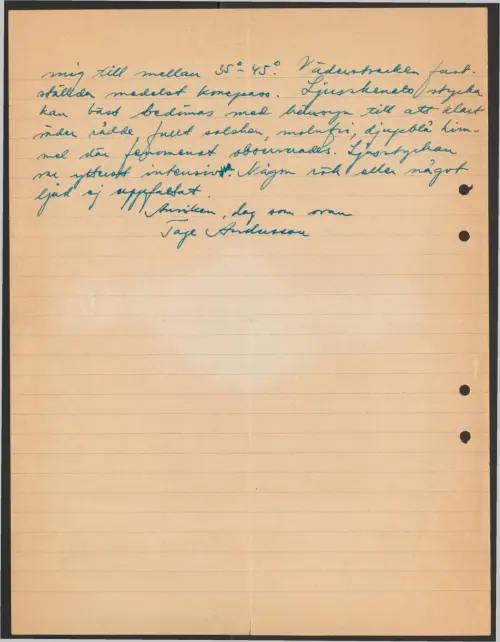 mig till mellan 35°-45°. Väderstrecken fast-
ställda medelst kompass. Ljusskenets styrka
kan bäst bedömas med hänsyn till att klart
väder rådde, fullt solsken, molnfri, djupblå him-
mel där fenomenet observerades. Ljusstyrkan
var ytterst intensiv. Någon rök eller något
ljud ej uppfattat.
dag som ovan
Tage Andersson